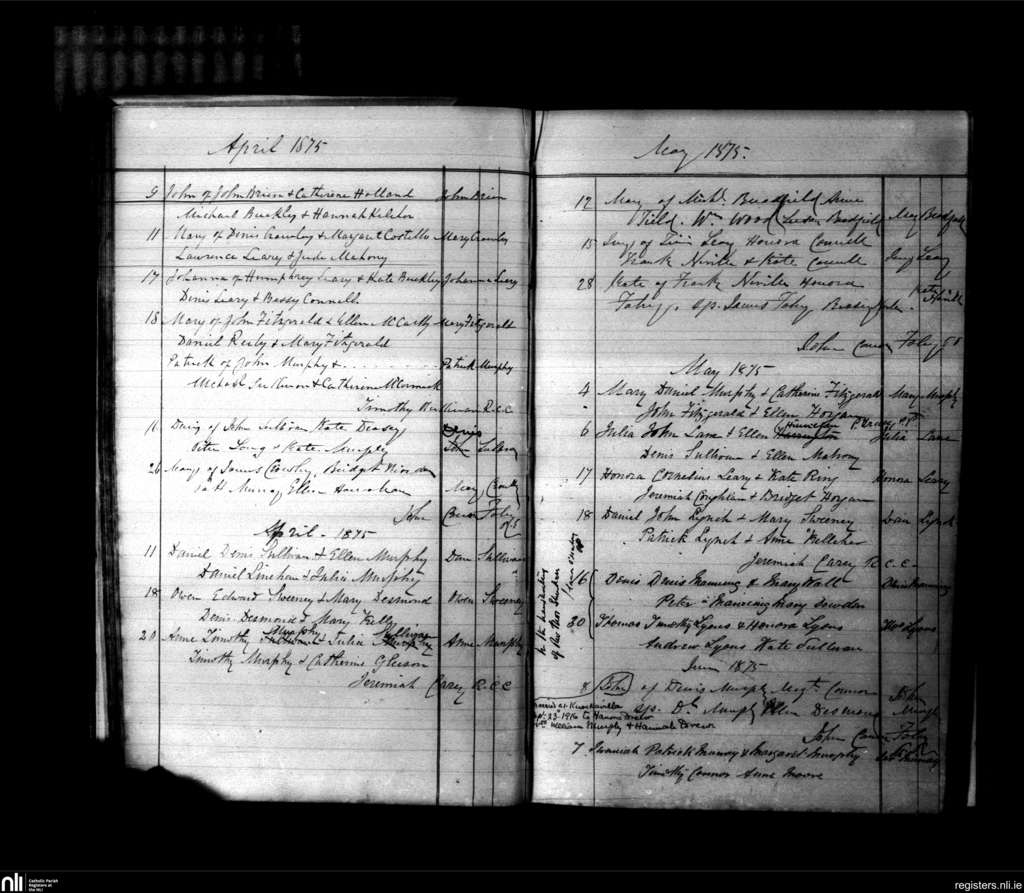 April 1875
9 John of John Brien & Catherine Holland John Brien
Michael Buckley & Hannah Keleher
11 Mary of Denis Crowley & Margaret Costello Mary Crowley
Lawrence Leary & Jude Mahony
17 Johanna of Humphrey Leary & Kate Buckley Johanna Leary
Denis Leary & Bessy Connell
18 Mary of John Fitzgerald & Ellen McCarthy Mary Fitzgerald
Daniel Reily & Mary Fitzgerald
Patrick of John Murphy & Patrick Murphy
Michael & Catherine McCormick
Timothy R.C.C
of John Sullivan Kate Deasy Denis
Peter Long & Kate Murphy
26 Mary of James Crowley, Bridget
Murray Ellen Mary Crowley
John Connor Foley
April - 1875
11 Daniel Denis Sullivan & Ellen Murphy Dan Sullivan
Daniel Linehan & Julia Murphy
18 Owen Edward Sweeney & Mary Desmond Owen Sweeney
Denis Desmond & Mary Kelly
20 Anne Timothy Murphy & Julia Sullivan Anne Murphy
Timothy Murphy & Catherine Gleeson
Jeremiah Carey R.C.C
May 1875.
12 May of Mich. Bradfield Anne
Field. Wm Wood Bradfield May Bradfield
15 of Leary Honora Connell
Frank Neville & Kate Connell Leary
28 Kate of Frank Neville Honora
Fahy, sps. James Fahy Kate Neville
John Connor Foley
May 1875
4 Mary Daniel Murphy & Catherine Fitzgerald Mary Murphy
John Fitzgerald & Ellen Horgan
6 Julia John Lane & Ellen Julia Lane
Denis Sullivan & Ellen Mahony
17 Honora Cornelius Leary & Kate Ring Honora Leary
Jeremiah Coghlan & Bridget Horgan
18 Daniel John Lynch & Mary Sweeney Dan Lynch
Patrick Lynch & Anne Kelleher
Jeremiah Carey R.C.C.
16 Denis Denis Manning & Mary Wall Denis Manning
Peter Manning Mary Dowden
30 Thomas Timothy Lyons & Honora Lyons Thos Lyons
Andrew Lyons Kate Sullivan
In the handwriting
of Rev
June 1875
8 John of Denis Murphy Mgt. Connor John
sps. Dl. Murphy Ellen Desmond Murphy
John Connor Foley
married at
Sept. 23-1916 to
William Murphy & Hannah
7 Jeremiah Patrick Murray & Margaret Murphy
Timothy Connor Anne Moore
nli
Catholic Parish
Registers at
the NLI
registers.nli.ie